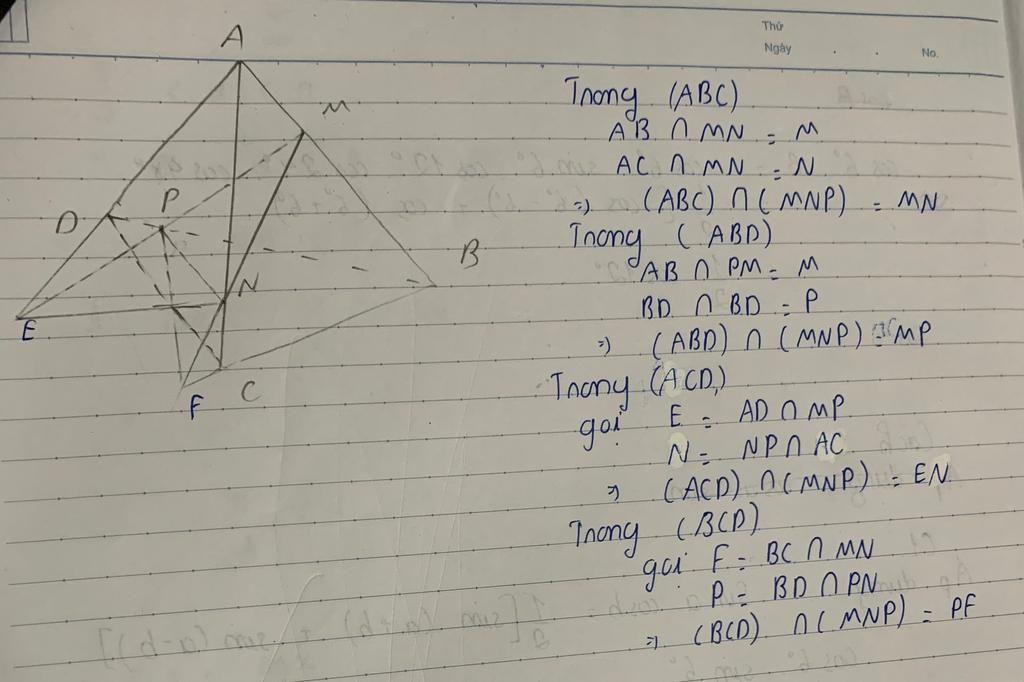 Thứ
Ngày
No.
A
M
D
P
B
N
E
C
F
Trong (ABC)
AB ∩ MN = M
AC ∩ MN = N
=) (ABC) ∩ (MNP) = MN
Trong (ABD)
AB ∩ PM = M
BD ∩ BD = P
=) (ABD) ∩ (MNP) = MP
Trong (ACD)
gọi E = AD ∩ MP
N = NP ∩ AC
=) (ACD) ∩ (MNP) = EN
Trong (BCD)
gọi F = BC ∩ MN
P = BD ∩ PN
=) (BCD) ∩ (MNP) = PF